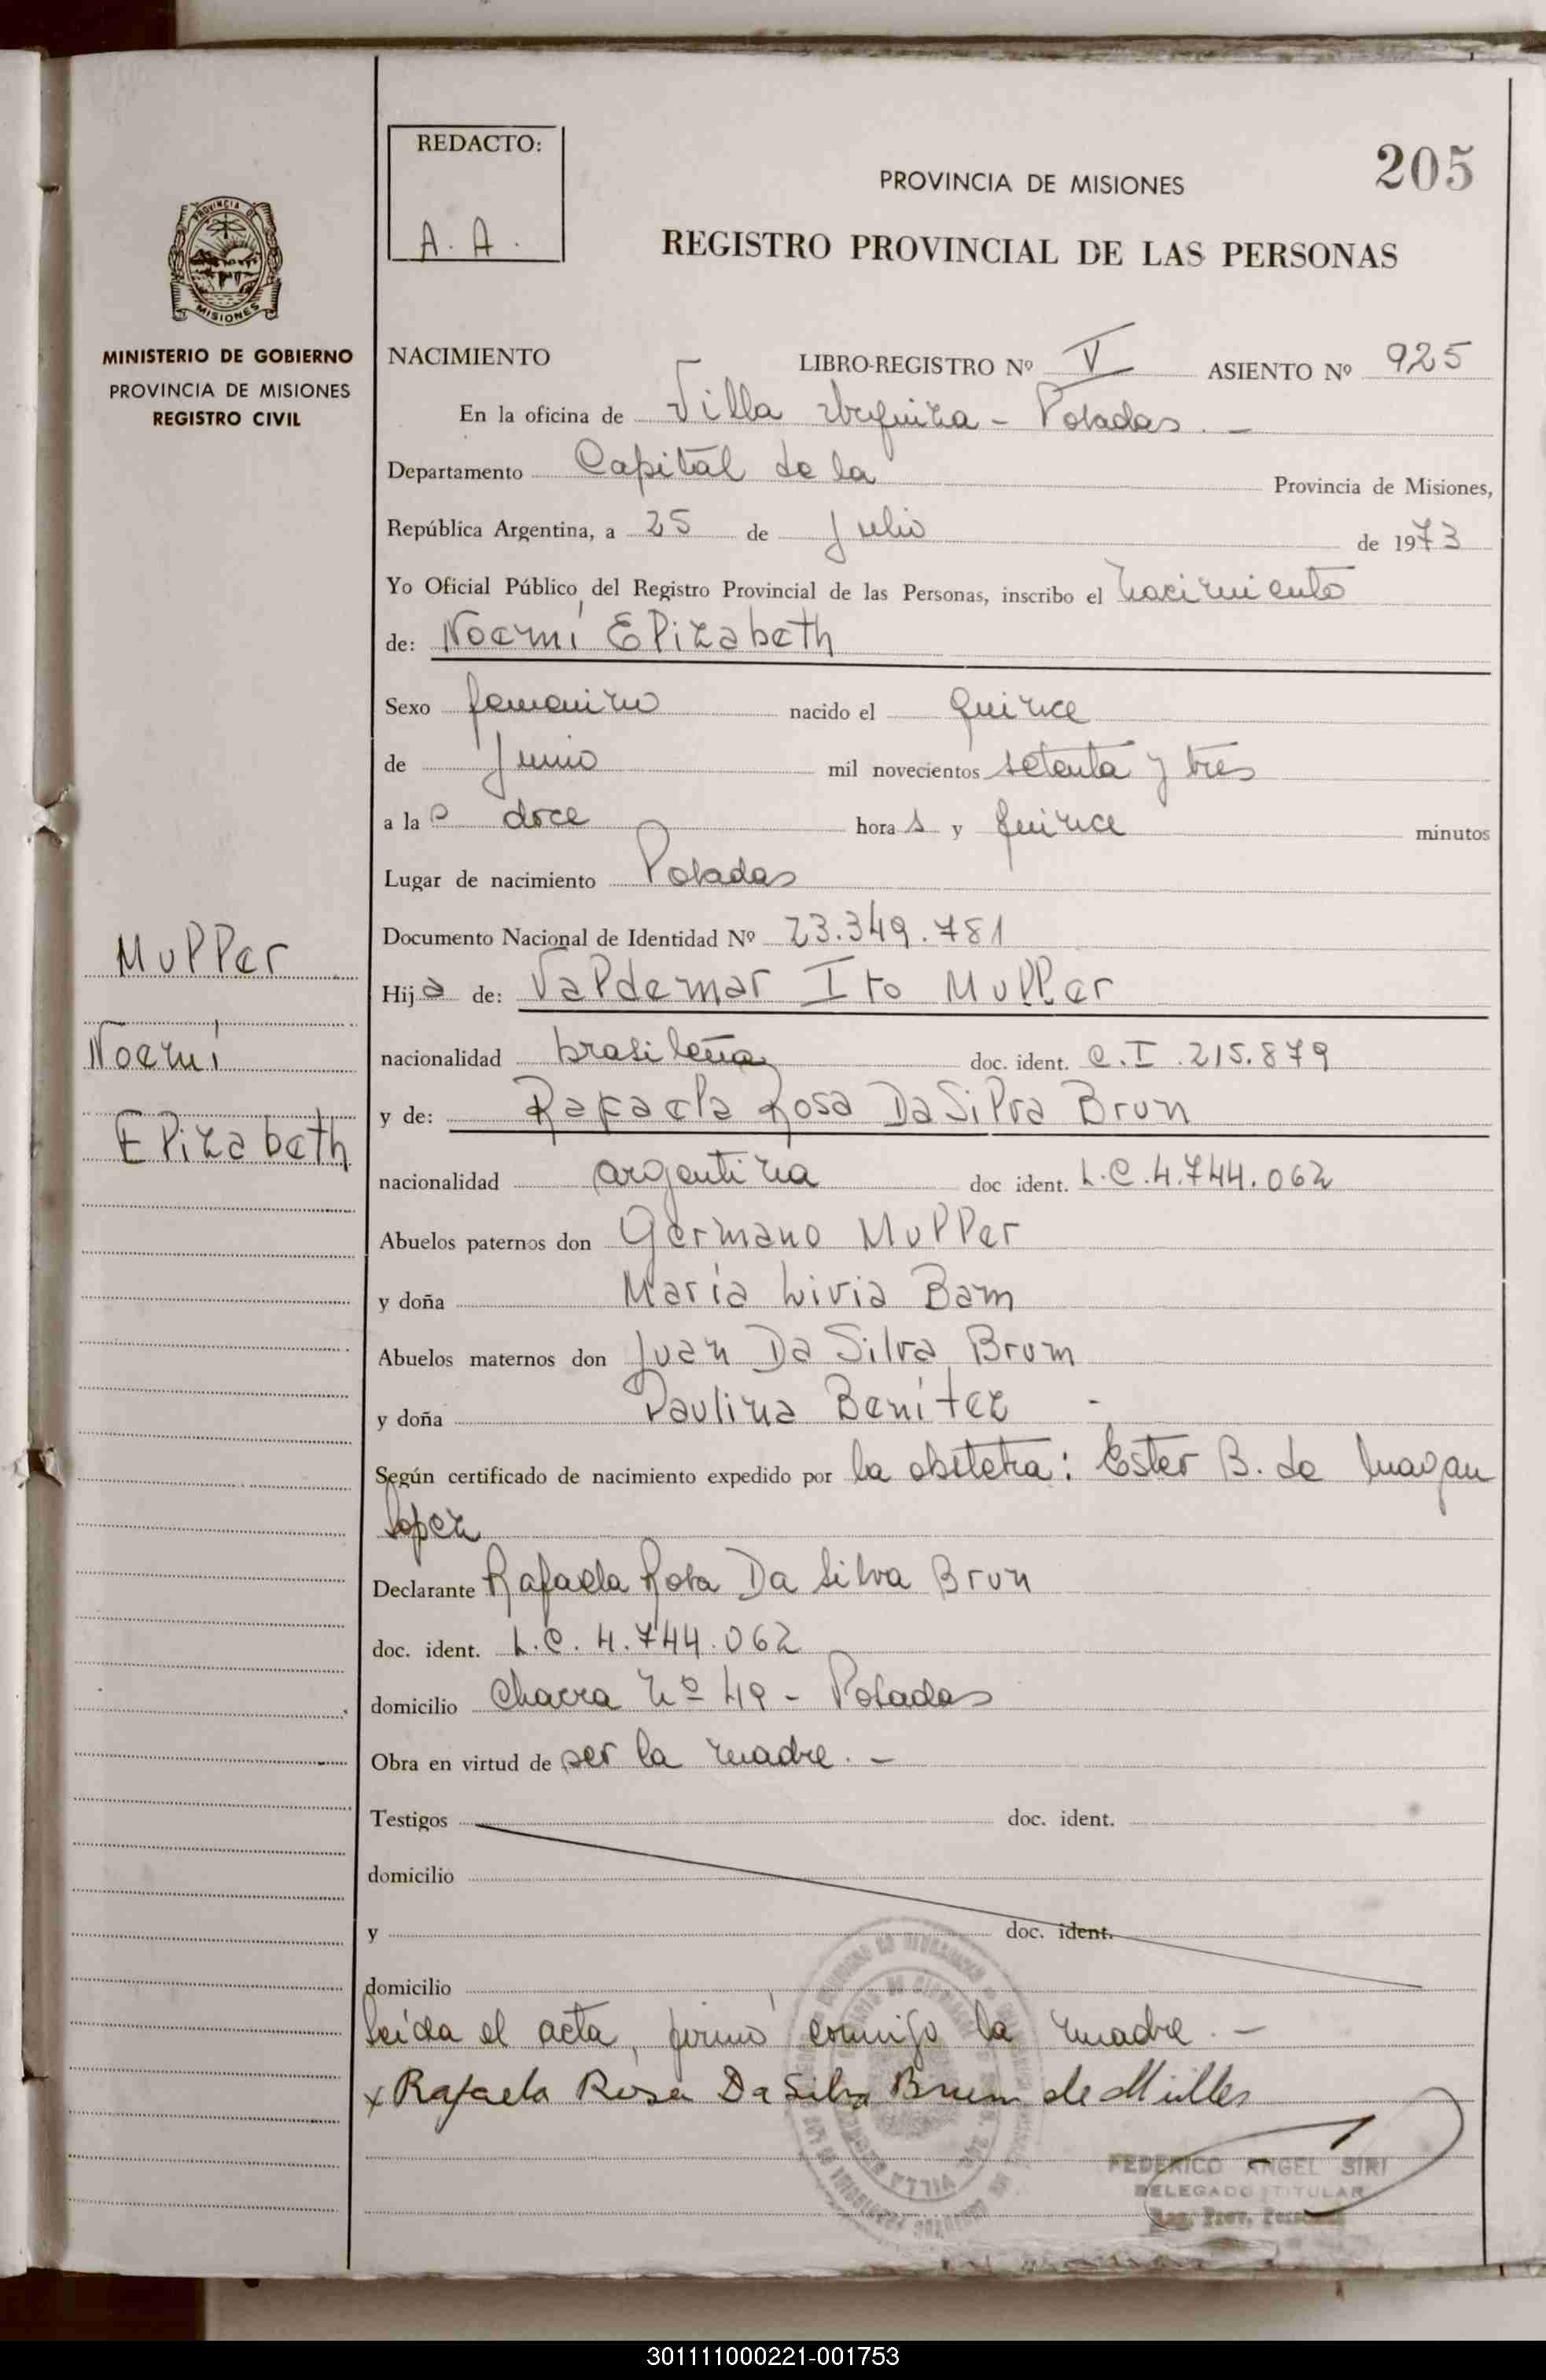 REDACTO:
A. A.
205
PROVINCIA DE MISIONES
REGISTRO PROVINCIAL DE LAS PERSONAS
PROVINCIA DE
MISIONES
MINISTERIO DE GOBIERNO
PROVINCIA DE MISIONES
REGISTRO CIVIL
NACIMIENTO LIBRO-REGISTRO Nº V ASIENTO Nº 925
En la oficina de Villa Urquiza - Posadas. -
Departamento Capital de la Provincia de Misiones,
República Argentina, a 25 de Julio de 1973
Yo Oficial Público del Registro Provincial de las Personas, inscribo el nacimiento
de: Noemí Elizabeth
Sexo femenino nacido el quince
de Junio mil novecientos setenta y tres
a las doce hora s y quince minutos
Lugar de nacimiento Posadas
Documento Nacional de Identidad Nº 23.349.781
Muller
Hija de: Valdemar Ito Muller
Noemí
nacionalidad brasileña doc. ident. C.I. 215.879
Elizabeth
y de: Rafaela Rosa Da Silva Brun
nacionalidad argentina doc ident. L.C.4.744.062
Abuelos paternos don Germano Muller
y doña María Livia Bam
Abuelos maternos don Juan Da Silva Brum
y doña Paulina Benítez -
Según certificado de nacimiento expedido por la obstetra: Ester B. de
Lopez
Declarante Rafaela Rosa Da Silva Brun
doc. ident. L.C. 4.744.062
domicilio Chacra Nº 49 - Posadas
Obra en virtud de ser la madre. -
Testigos doc. ident.
domicilio
y doc. ident.
domicilio
Leída el acta, firmó conmigo la madre. -
x Rafaela Rosa Da Silva Brum de Müller
FEDERICO ANGEL SIRI
DELEGADO TITULAR
Reg. Prov. Personas
301111000221-001753